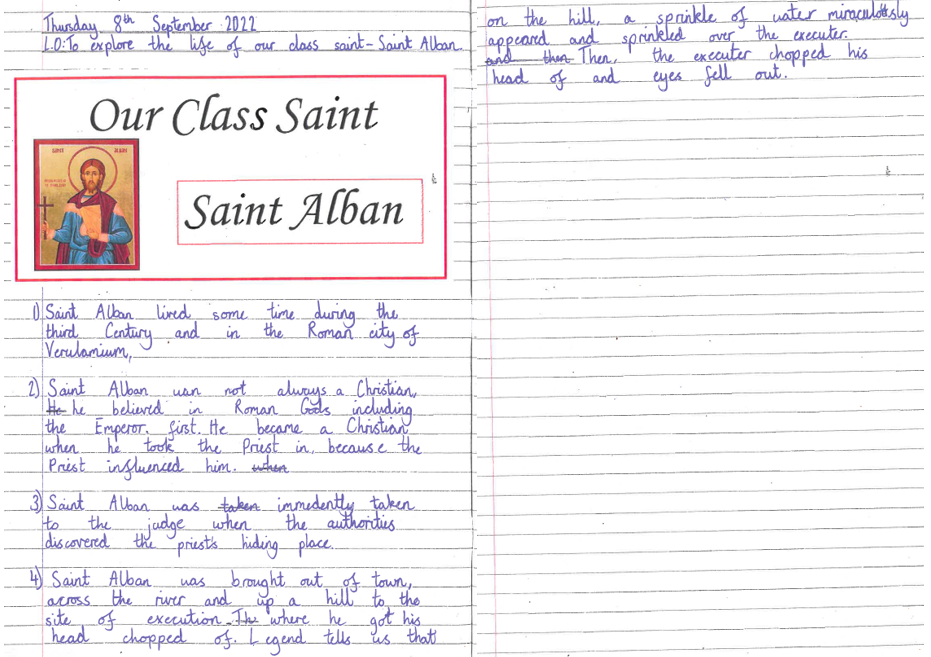 Thursday 8th September 2022
L.O: To explore the life of our class saint - Saint Alban.
Our Class Saint
Saint Alban
1) Saint Alban lived some time during the
third Century and in the Roman city of
Verulamium,
2) Saint Alban uan not always a Christian,
He he believed in Roman Gods including
the Emperor. first. He became a Christian
when he took the Priest in, because the
Priest influenced him. when
3) Saint Alban was taken immedently taken
to the judge when the authorities
discovered the priest's hiding place.
4) Saint Alban was brought out of town,
across the river and up a hill to the
site of execution. The where he got his
head chopped of. Legend tells us that
on the hill, a sprinkle of water miraculously
appeared and sprinkled over the executer.
and then Then, the executer chopped his
head of and eyes fell out.